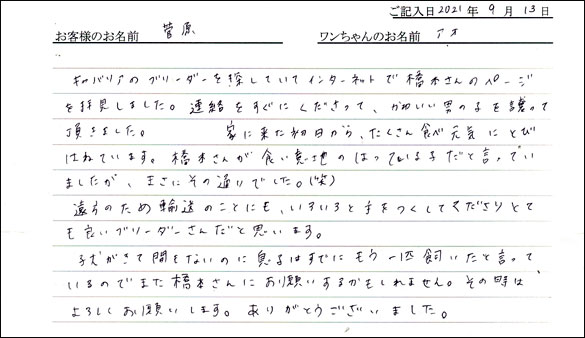 ご記入日 2021 年 9 月 13 日
お客様のお名前 菅原 ワンちゃんのお名前 アオ
キャバリアのブリーダーを探していてインターネットで橋本さんのページ
を拝見しました。連絡をすぐにくださって、かわいい男の子を譲って
頂きました。 家に来た初日から、たくさん食べ元気にとび
はねています。橋本さんが食い意地のはっている子だと言ってい
ましたが、まさにその通りでした。(笑)
遠方のため輸送のことにも、いろいろと手をつくしてくださりとて
も良いブリーダーさんだと思います。
子犬がきて間もないのに息子はすでにもう一匹飼いたと言って
いるのでまた橋本さんにお願いするかもしれません。その時は
よろしくお願いします。ありがとうございました。